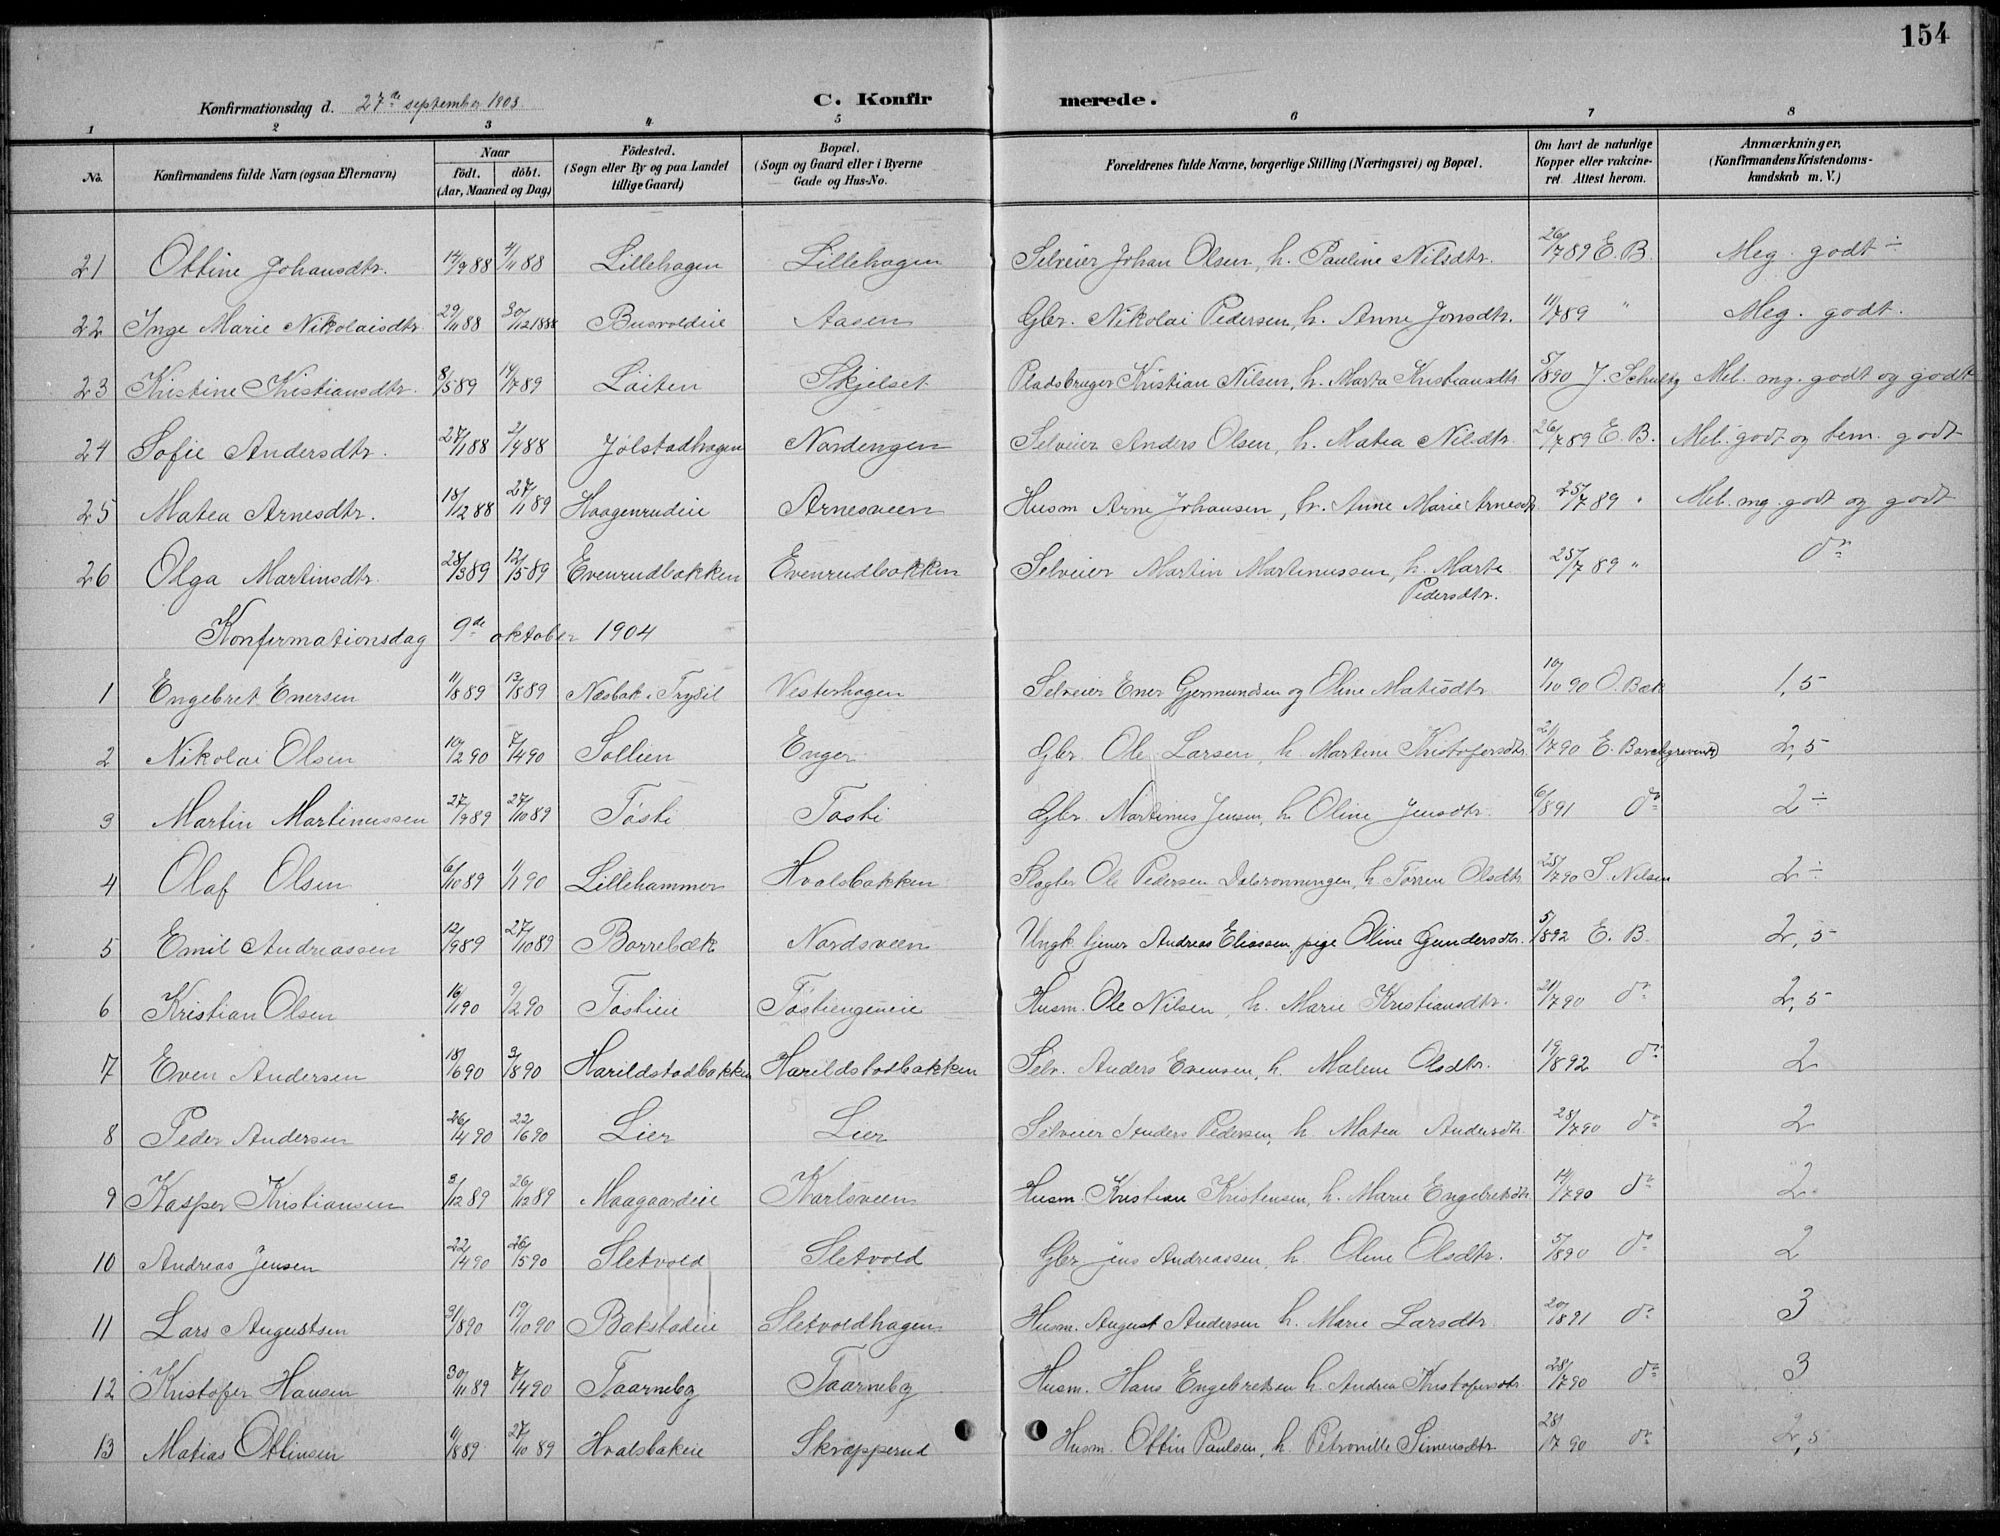 154
Konfirmationsdag d. 27de september 1903. C. Konfirmerede.
1 2 3 4 5 6 7 8
No. Konfirmandens fulde Navn (ogsaa Efternavn) Naar født. døbt. (Aar, Maaned og Dag) Fødested. (Sogn eller By og paa Landet tillige Gaard) Bopæl. (Sogn og Gaard eller i Byerne Gade og Hus-No. Forældrenes fulde Navne, borgerlige Stilling (Næringsvei) og Bopæl. Om havt de naturlige Kopper eller vakcineret. Attest herom. Anmærkninger, (Konfirmandens Kristendomskundskab m. V.)
21 Ottine Johansdtr. 14/9 88 4/11 88 Lillehagen Lillehagen Selveier Johan Olsen, h. Pauline Nilsdtr. 26/7 89 E. B. Meg. godt ÷
22 Inge Marie Nikolaisdtr 29/11 88 30/12 1888 Busvoldeie Aasen Gbr. Nikolai Pedersen, h. Anne Jonsdtr. 11/7 89 " Meg. godt.
23 Kristine Kristiansdtr. 8/5 89 14/7 89 Löiten Skjelset Pladsbruger Kristian Nilsen, h. Marta Kristiansdtr 5/8 90 J. Schultz Mel. mg. godt og godt
24 Sofie Andersdtr. 27/1 88 2/4 88 Jølstadhagen Nordengen Selveier Anders Olsen, h. Matea Nilsdtr. 26/7 89 E. B. Mel. godt og tem. godt
25 Matea Arnesdtr. 18/12 88 27/1 89 Haagenrudeie Arnesveen Husm Arne Johansen, h. Anne Marie Arnesdtr. 25/7 89 " Mel. mg. godt og godt
26 Olga Martinsdtr. 28/3 89 12/5 89 Evenrudbakken Evenrudbakken Selveier Martin Martinussen, h. Marte Pedersdtr. 25/7 89 " do
Konfirmationsdag 9de oktober 1904
1 Engebret Enersen 11/8 89 13/8 89 Næsbak i Trysil Vesterhagen Selveier Ener Gjermundsen og Oline Matisdtr 10/10 90 O. Bak 1,5
2 Nikolai Olsen 10/2 90 7/4 90 Sollien Enger Gbr. Ole Larsen, h. Martine Kristofersdtr 21/7 90 2,5
3 Martin Martinussen 27/9 89 27/10 89 Tösti Tosti Gbr. Martinus Jensen, h. Oline Jensdtr. 6/8 91 do 2 ÷
4 Olaf Olsen 6/10 89 1/1 90 Lillehammer Hvalsbakken Slagter Ole Pedersen Dalsrønningen, h. Torine Olsdtr 28/7 90 S. Nilsen 2 ÷
5 Emil Andreassen 12/9 89 27/10 89 Borrebæk Nordsveen Ungk. tjener Andreas Eliassen pige Oline Gundersdtr. 5/8 92 E. B. 2,5
6 Kristian Olsen 16/1 90 9/2 90 Tostieie Töstiengeneie Husm. Ole Nilsen, h. Marie Kristiansdtr. 21/7 90 do 2,5
7 Even Andersen 18/6 90 3/8 90 Harildstadbakken Harildstadbakken Selv. Anders Evensen, h. Malene Olsdtr. 19/8 92 do 2
8 Peder Andersen 26/4 90 22/6 90 Lier Lier Selveier Anders Pedersen, h. Matea Andersdtr. 28/7 90 do 2
9 Kasper Kristiansen 3/12 89 26/12 89 Maagaardeie Karlsveen Husm. Kristian Kristensen, h. Marie Engebretsdtr 14/7 90 do 2
10 Andreas Jensen 22/4 90 26/5 90 Sletvold Sletvold Gbr Jens Andreassen, h. Oline Olsdtr. 5/8 90 do 2
11 Lars Augustsen 31/8 90 19/10 90 Bakstadeie Sletvoldhagen Husm. August Andersen h. Marie Larsdtr. 20/8 91 do 3
12 Kristofer Hansen 30/11 89 7/4 90 Taarnebg Taarnebg Husm. Hans Engebretsen h. Andrea Kristofersdtr. 28/7 90 do 3
13 Matias Ottinsen 11/8 89 27/10 89 Hvalsbakeie Skræpperud Husm. Ottin Paulsen, h. Petronille Simensdtr 28/7 90 do 2,5